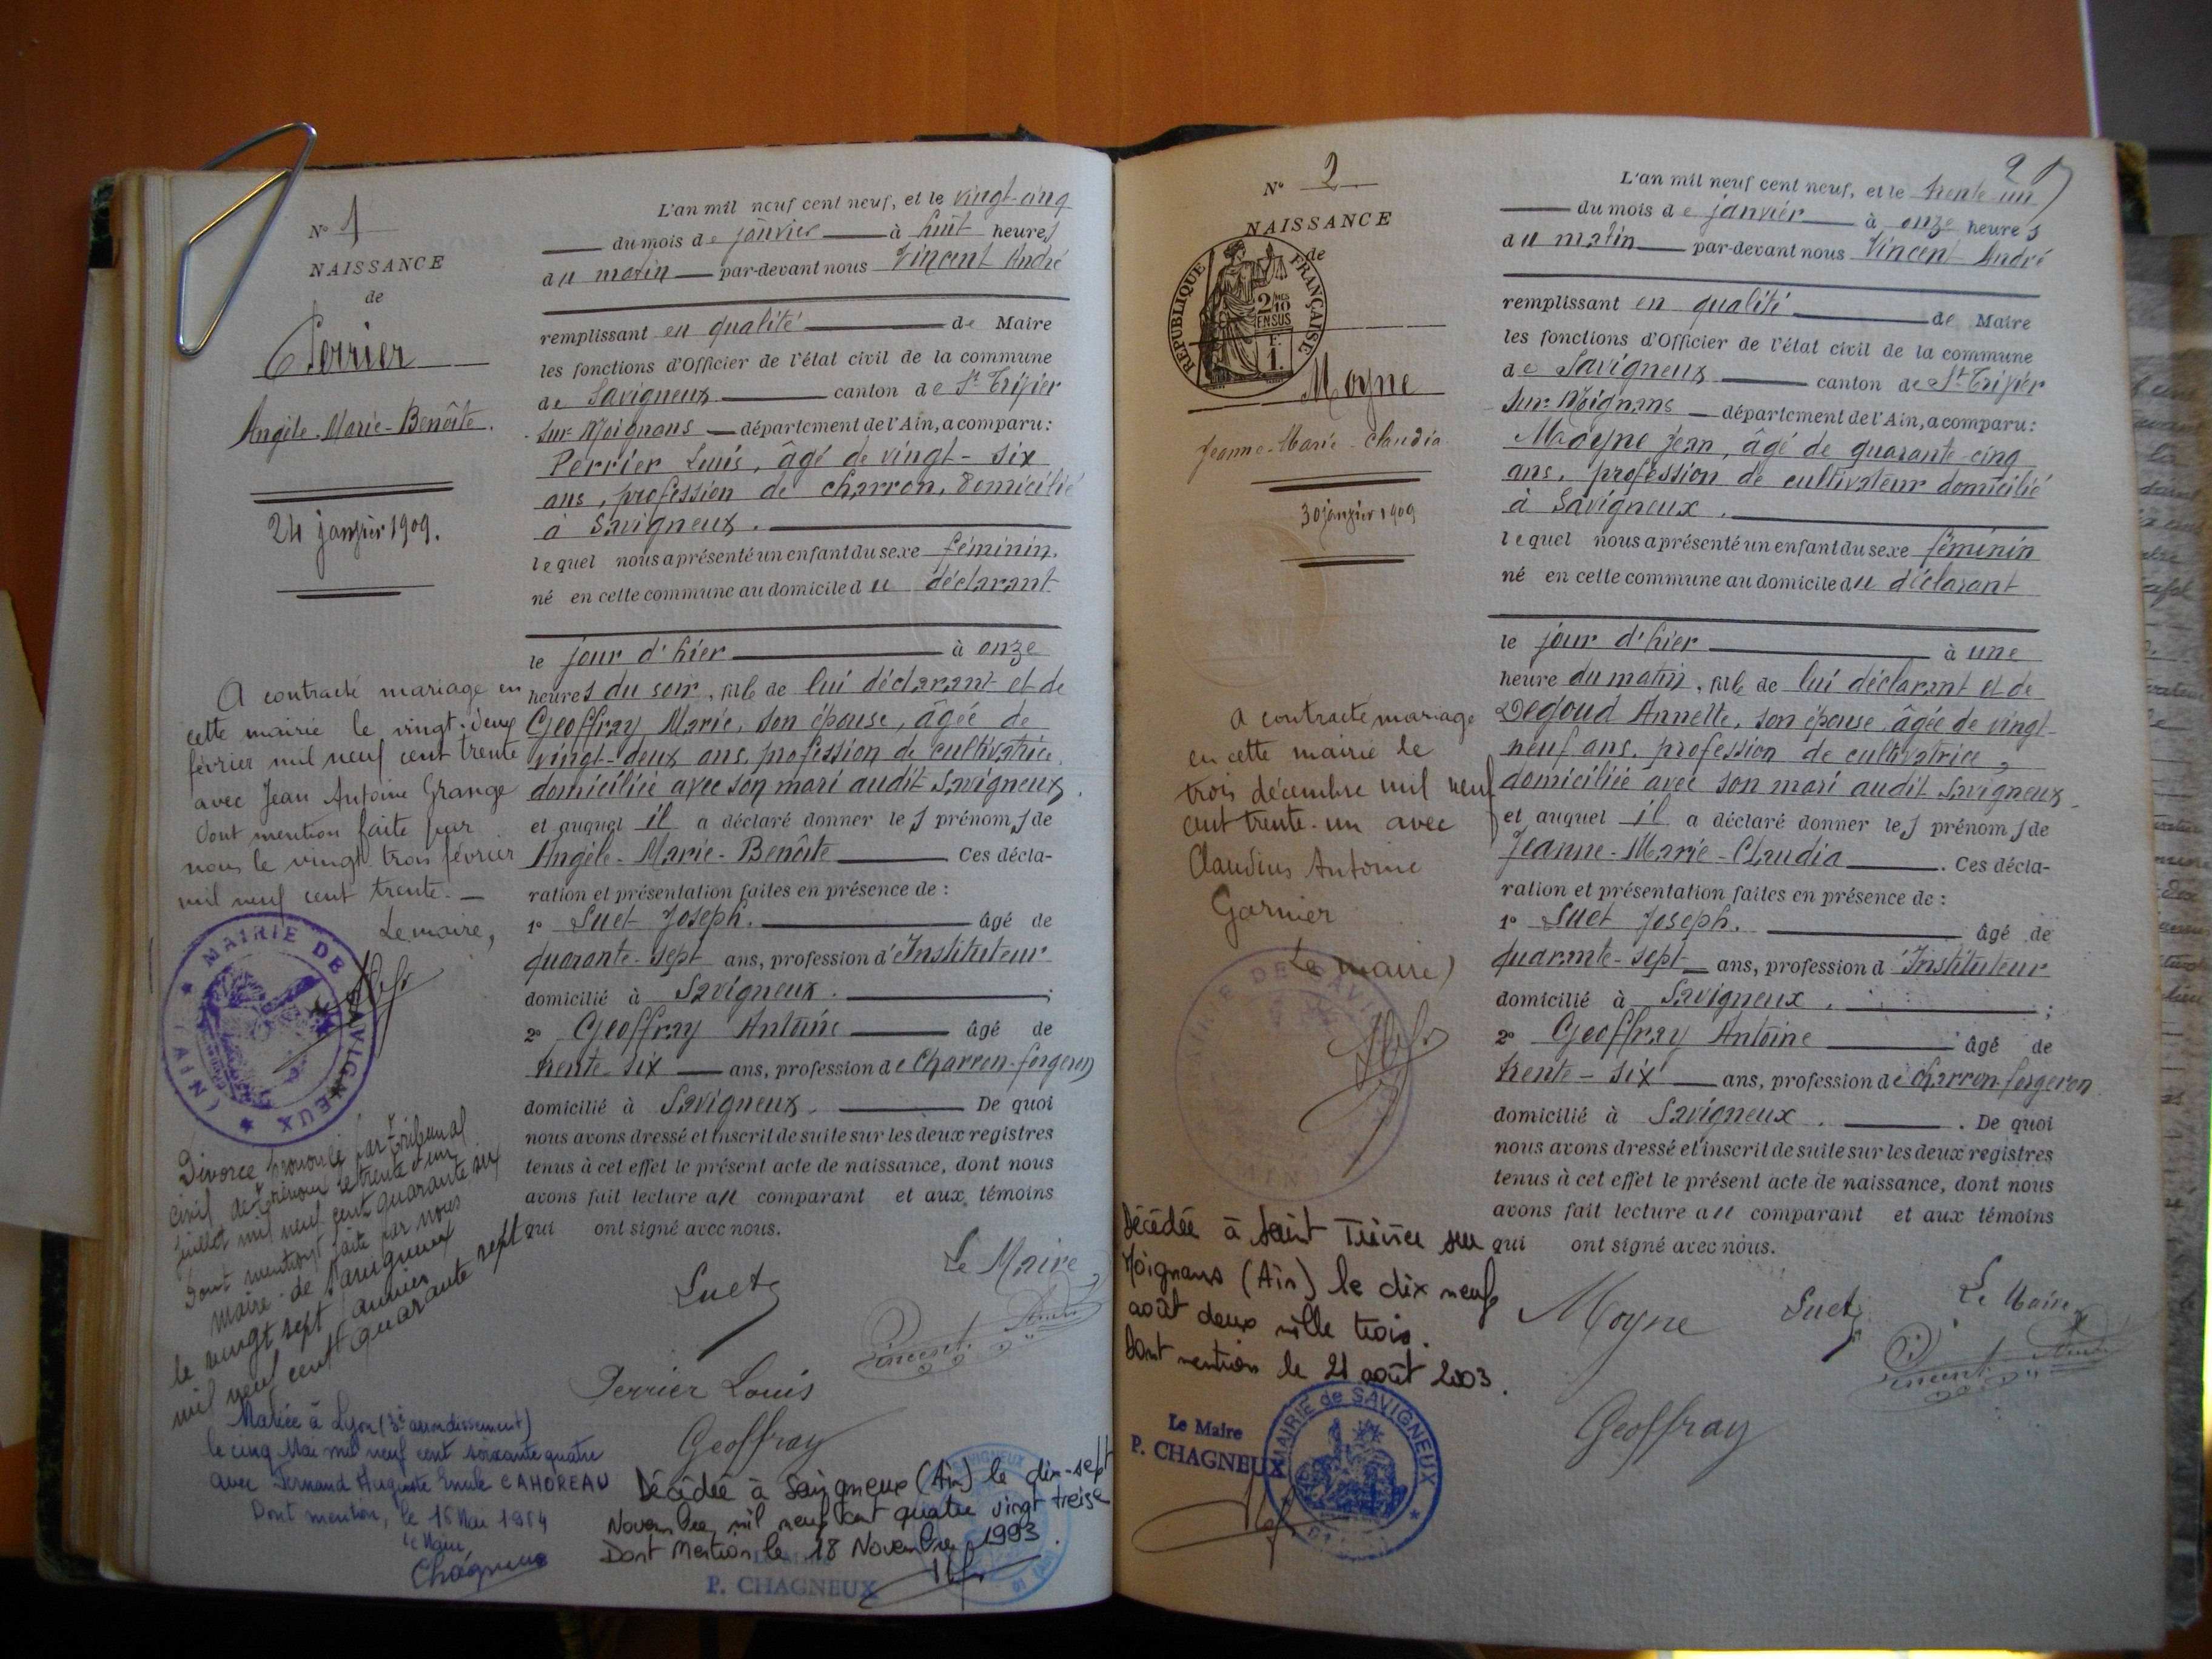 N° 1
NAISSANCE
de
Perrier
Angèle-Marie-Benôite.
24 janvier 1909.
A contracté mariage en
cette mairie le vingt-deux
février mil neuf cent trente
avec Jean Antoine Grange
dont mention faite par
nous le vingt trois février
mil neuf cent trente. —
Le maire,
MAIRIE DE SAVIGNEUX
(AIN)
Divorce prononcé par tribunal
civil de Trévoux le trente et un
juillet mil neuf cent quarante six
Dont mention faite par nous
maire de Savigneux
le vingt sept janvier
mil neuf cent quarante sept
Mariée à Lyon (3e arrondissement)
le cinq Mai mil neuf cent soixante quatre
avec Fernand Auguste Emile CAHOREAU
Dont mention, le 16 Mai 1964
le Maire
Chagneux
L'an mil neuf cent neuf, et le vingt-cinq
du mois de janvier à huit heures
du matin par-devant nous Vincent André
remplissant en qualité de Maire
les fonctions d'Officier de l'état civil de la commune
de Savigneux canton de St Trivier
sur Moignans département de l'Ain, a comparu:
Perrier Louis, âgé de vingt-six
ans, profession de charron, domicilié
à Savigneux.
lequel nous a présenté un enfant du sexe féminin,
né en cette commune au domicile du déclarant
le jour d'hier à onze
heures du soir, fille de lui déclarant et de
Geoffray Marie, son épouse, âgée de
vingt-deux ans, profession de cultivatrice,
domiciliée avec son mari audit Savigneux.
et auquel il a déclaré donner les prénoms de
Angèle-Marie-Benôite. Ces décla-
ration et présentation faites en présence de :
1° Suet Joseph. âgé de
quarante-sept ans, profession d'Instituteur
domicilié à Savigneux. ;
2° Geoffray Antoine âgé de
trente-six ans, profession de Charron-forgeron
domicilié à Savigneux. De quoi
nous avons dressé et inscrit de suite sur les deux registres
tenus à cet effet le présent acte de naissance, dont nous
avons fait lecture au comparant et aux témoins
qui ont signé avec nous.
Suet
Le Maire
Vincent André
Perrier Louis
Geoffray
Décédée à Savigneux (Ain) le dix-sept
Novembre mil neuf cent quatre vingt treize
Dont Mention le 18 Novembre 1993.
P. CHAGNEUX
N° 2
NAISSANCE
de
RÉPUBLIQUE FRANÇAISE
2/10 MES
EN SUS
F.
1.
Moyne
Jeanne-Marie-Claudia
30 janvier 1909
A contracté mariage
en cette mairie le
trois décembre mil neuf
cent trente-un avec
Claudius Antoine
Garnier
Le maire,
Décédée à Saint Trivier sur
Moignans (Ain) le dix neuf
août deux mille trois.
Dont mention le 21 août 2003.
Le Maire
P. CHAGNEUX
MAIRIE de SAVIGNEUX
2
L'an mil neuf cent neuf, et le trente un
du mois de janvier à onze heures
du matin par-devant nous Vincent André
remplissant en qualité de Maire
les fonctions d'Officier de l'état civil de la commune
de Savigneux canton de St Trivier
sur Moignans département de l'Ain, a comparu:
Moyne Jean, âgé de quarante-cinq
ans, profession de cultivateur domicilié
à Savigneux.
lequel nous a présenté un enfant du sexe féminin
né en cette commune au domicile du déclarant
le jour d'hier à une
heure du matin, fille de lui déclarant et de
Degoud Annette, son épouse âgée de vingt-
neuf ans, profession de cultivatrice,
domiciliée avec son mari audit Savigneux
et auquel il a déclaré donner les prénoms de
Jeanne-Marie-Claudia. Ces décla-
ration et présentation faites en présence de :
1° Suet Joseph. âgé de
quarante-sept ans, profession d'Instituteur
domicilié à Savigneux. ;
2° Geoffray Antoine âgé de
trente-six ans, profession de charron-forgeron
domicilié à Savigneux. De quoi
nous avons dressé et inscrit de suite sur les deux registres
tenus à cet effet le présent acte de naissance, dont nous
avons fait lecture au comparant et aux témoins
qui ont signé avec nous.
Moyne
Suet
Le Maire
Vincent André
Geoffray